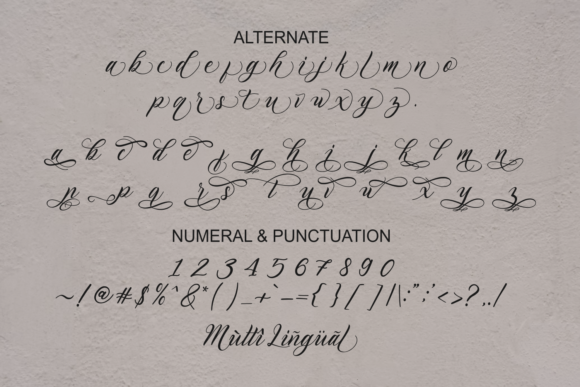 ALTERNATE
a b c d e f g h i j k l m n o
p q r s t u v w x y z .
a b c d e f g h i j k l m n
o p q r s t u v w x y z
NUMERAL & PUNCTUATION
1 2 3 4 5 6 7 8 9 0
~ ! @ # $ % ^ & * ( ) _ + ` - = { } [ ] / | \ : " ; ' < > ? , . /
Mùltî Liñgüãl